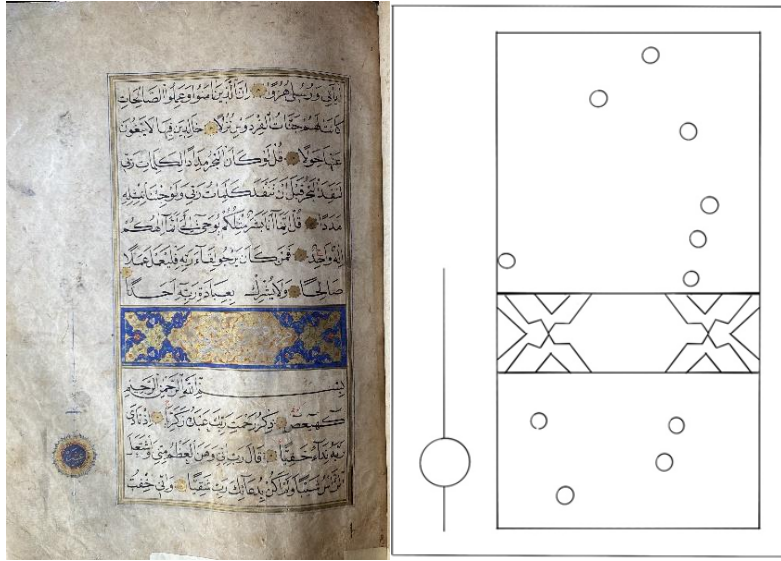 اياتي ورسلي هزوا ان الذين امنوا وعملوا الصالحات
كانت لهم جنات الفردوس نزلا خالدين فيها لا يبغون
عنها حولا قل لو كان البحر مدادا لكلمات ربي
لنفد البحر قبل ان تنفد كلمات ربي ولو جئنا بمثله
مددا قل انما انا بشر مثلكم يوحى الي انما الهكم
اله واحد فمن كان يرجو لقاء ربه فليعمل عملا
صالحا ولا يشرك بعبادة ربه احدا
بسم الله الرحمن الرحيم
كهيعص ذكر رحمت ربك عبده زكريا اذ نادى
ربه نداء خفيا قال رب اني وهن العظم مني واشتعل
الراس شيبا ولم اكن بدعائك رب شقيا واني خفت